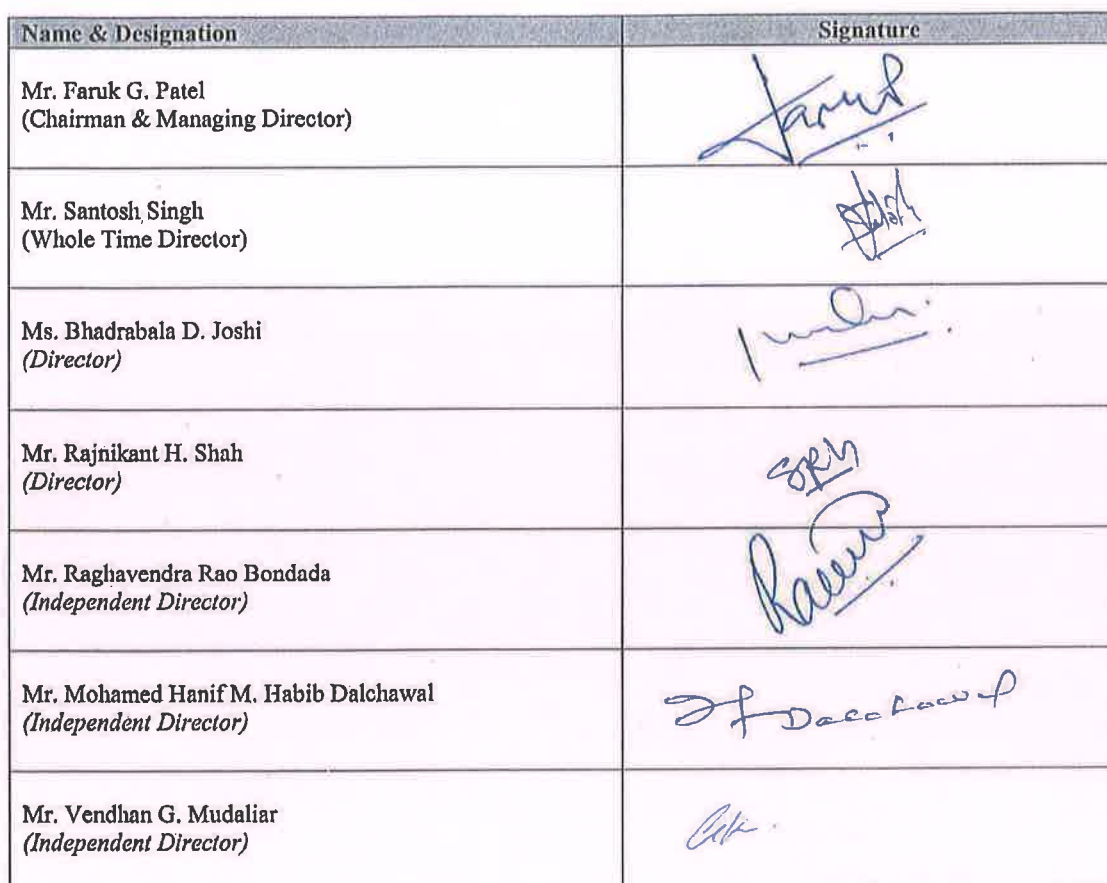 Name & Designation Signature
Mr. Faruk G. Patel
(Chairman & Managing Director)
Mr. Santosh Singh
(Whole Time Director)
Ms. Bhadrabala D. Joshi
(Director)
Mr. Rajnikant H. Shah
(Director)
SRH
Mr. Raghavendra Rao Bondada
(Independent Director)
Mr. Mohamed Hanif M. Habib Dalchawal
(Independent Director)
Mr. Vendhan G. Mudaliar
(Independent Director)